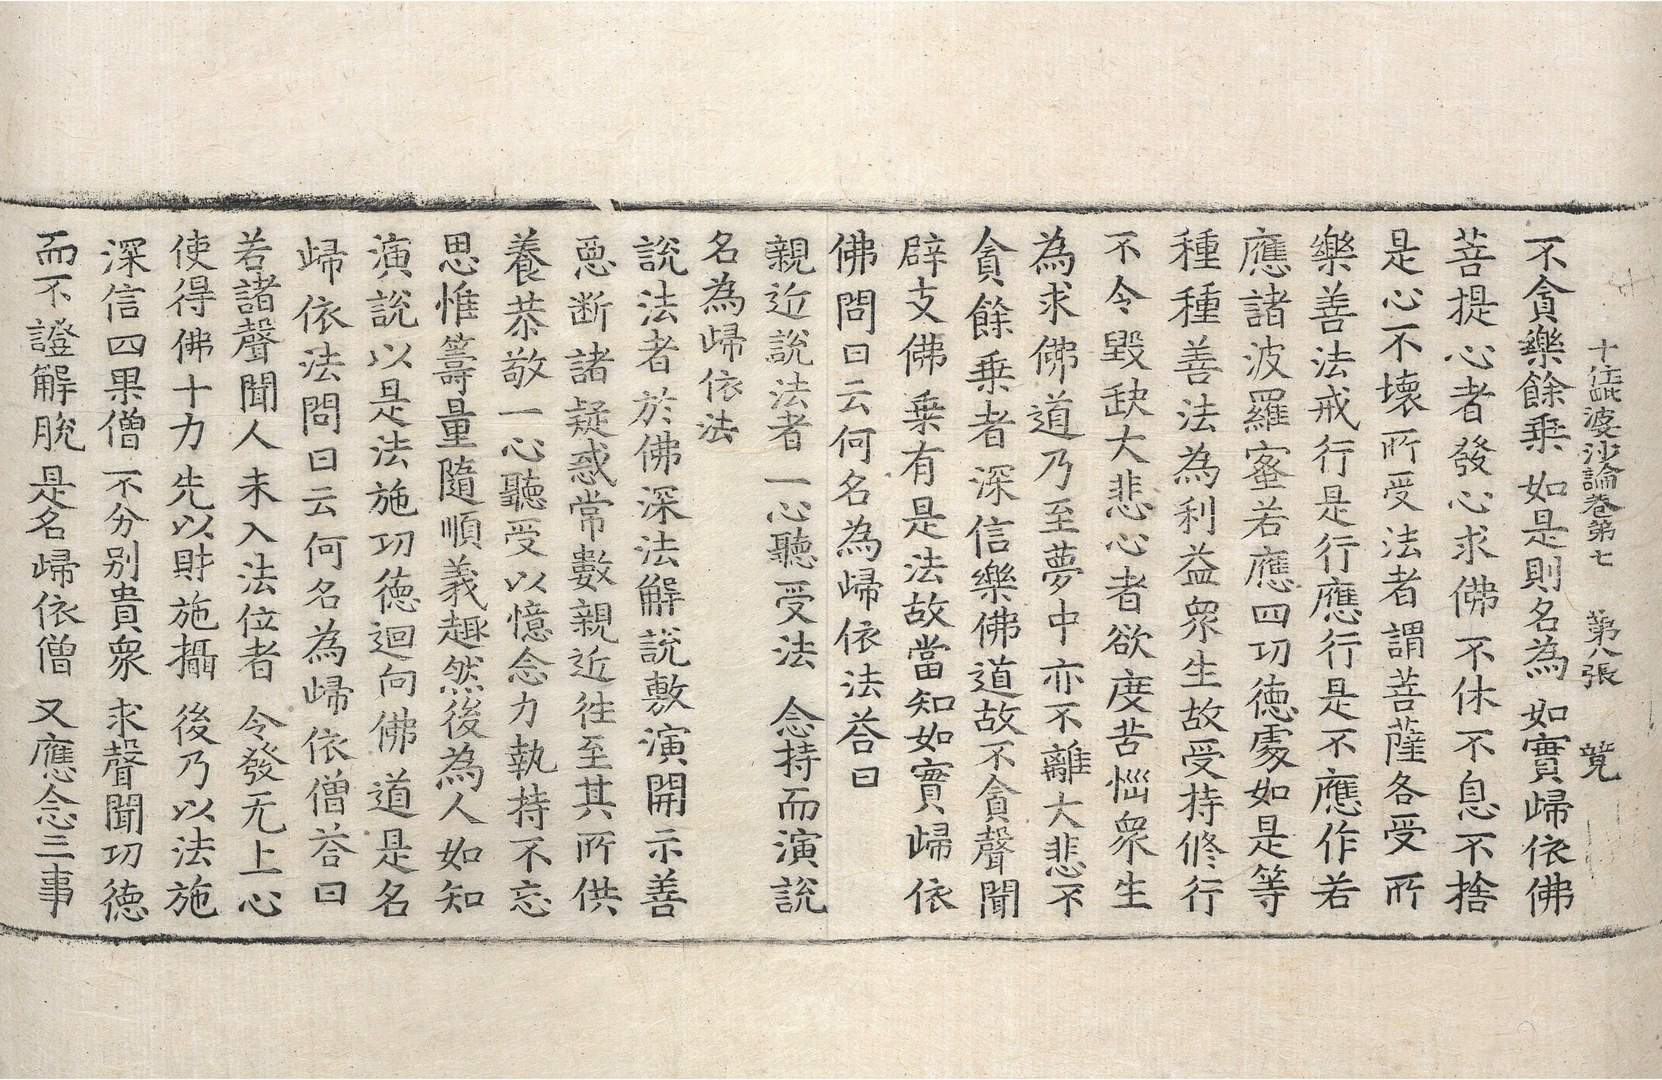 十住毗婆沙論卷第七 第八張 覚
不貪樂餘乗如是則名為如實歸依佛
菩提心者發心求佛不休不息不捨
是心不壞所受法者謂菩薩各受所
樂善法戒行是行應行是不應作若
應諸波羅蜜若應四功德處如是等
種種善法為利益衆生故受持修行
不令毀缺大悲心者欲度苦惱衆生
為求佛道乃至夢中亦不離大悲不
貪餘乗者深信樂佛道故不貪聲聞
辟支佛乗有是法故當知如實歸依
佛問曰云何名為歸依法荅曰
親近說法者一心聽受法念持而演說
名為歸依法
說法者於佛深法解說敷演開示善
惡断諸疑惑常數親近往至其所供
養恭敬一心聽受以憶念力執持不忘
思惟籌量隨順義趣然後為人如知
演說以是法施功德迴向佛道是名
歸依法問曰云何名為歸依僧荅曰
若諸聲聞人未入法位者令發无上心
使得佛十力先以財施攝後乃以法施
深信四果僧不分別貴衆求聲聞功德
而不證解脫是名歸依僧又應念三事